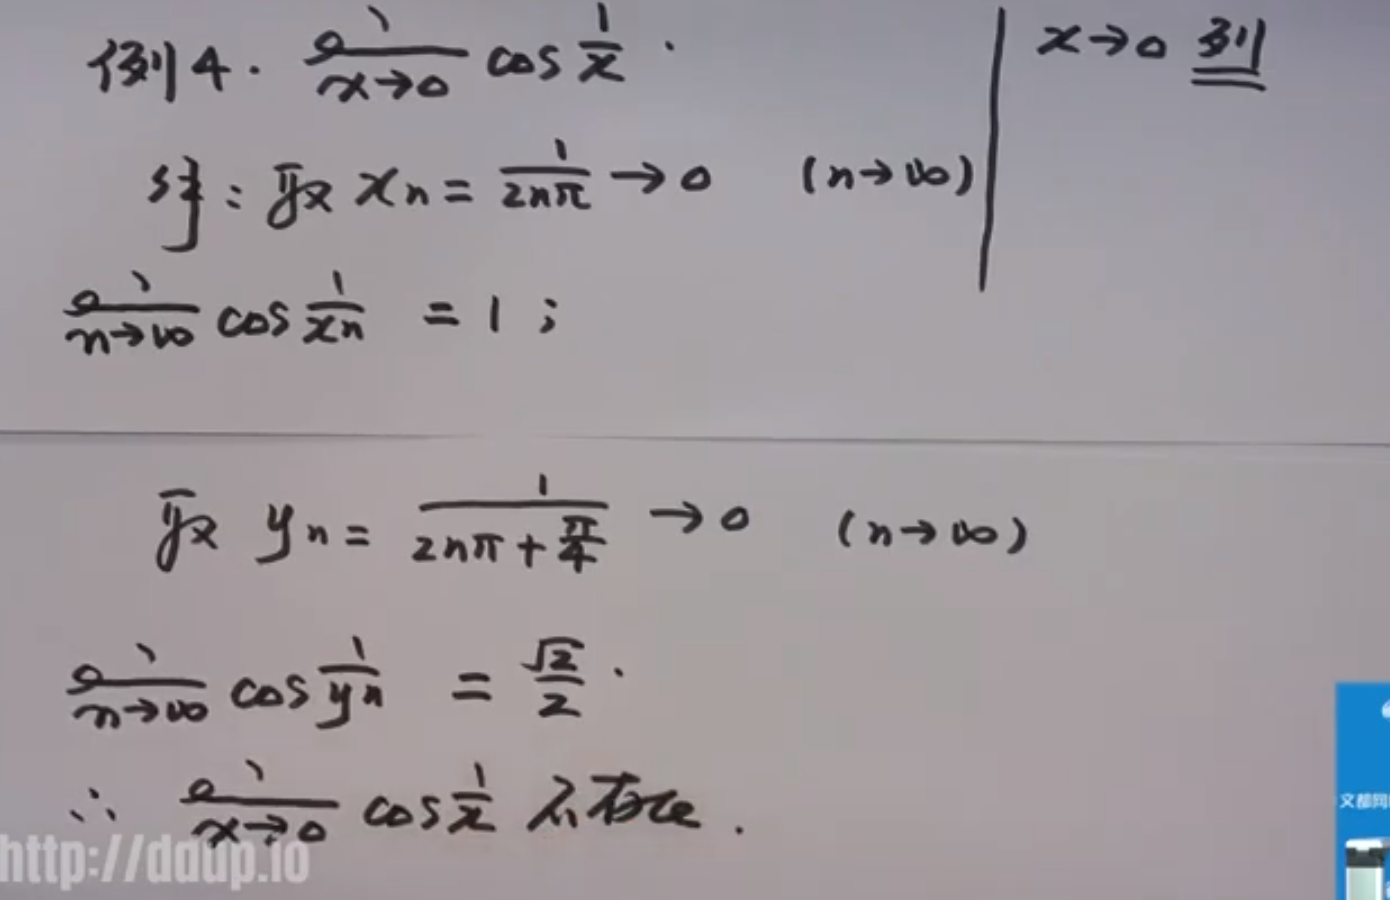 例4. lim x→0 cos 1/x .
x→0 列
解: 取 xn = 1/2nπ → 0 (n→∞)
lim n→∞ cos 1/xn = 1 ;
取 yn = 1/(2nπ + π/4) → 0 (n→∞)
lim n→∞ cos 1/yn = √2/2 .
∴ lim x→0 cos 1/x 不存在 .
http://ddup.io
文都网